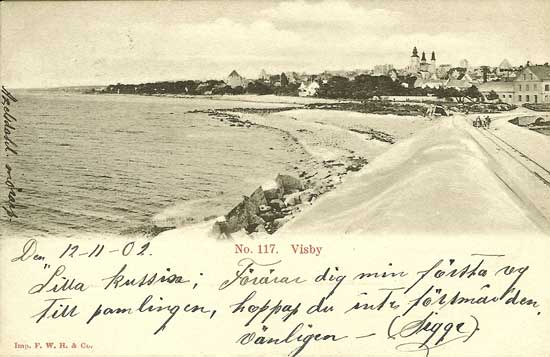 No. 117. Visby
Den 12-11-02.
"Lilla kussisa; Förärar dig min första vy
till samlingen, hoppas du inte försmår den.
vänligen - (Sigge)
Imp. F. W. H. & Co.